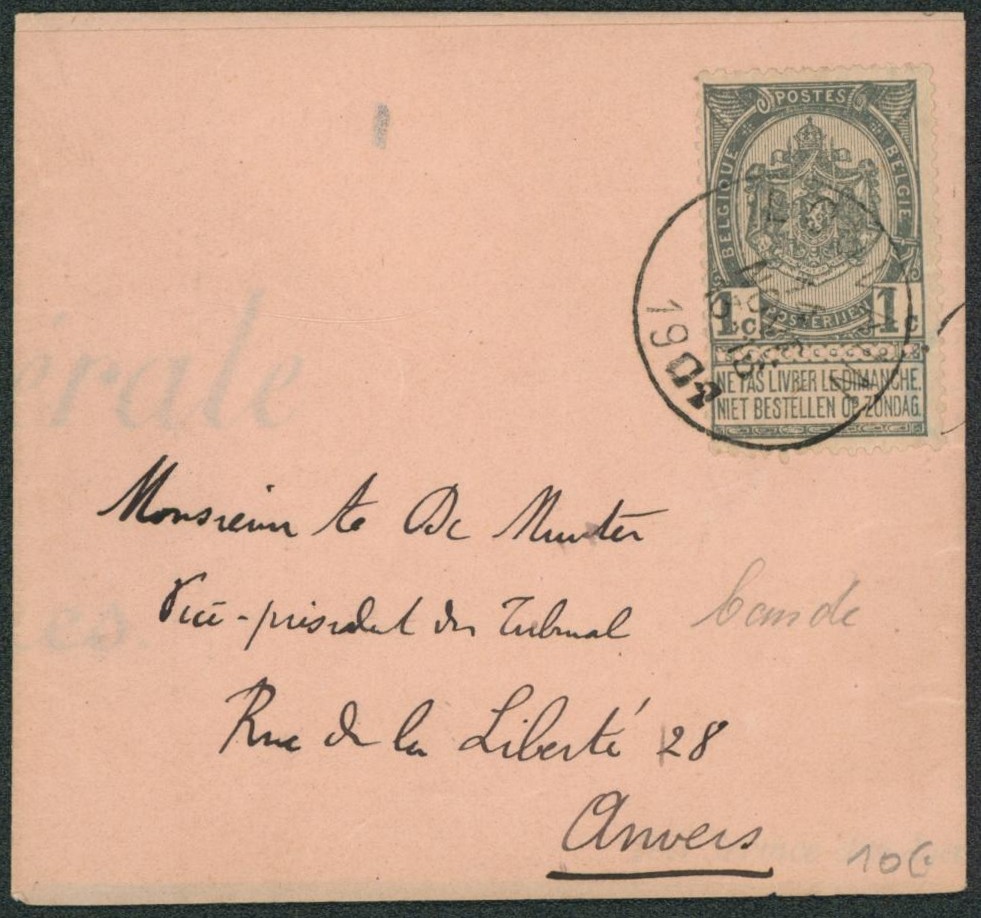 POSTES
BELGIQUE BELGIE
POSTERIJEN
1c 1c
NE PAS LIVRER LE DIMANCHE.
NIET BESTELLEN OP ZONDAG.
19
érale
Monsieur De Munter
Vice-président du Tribunal
bande
Rue de la Liberté 28
Anvers